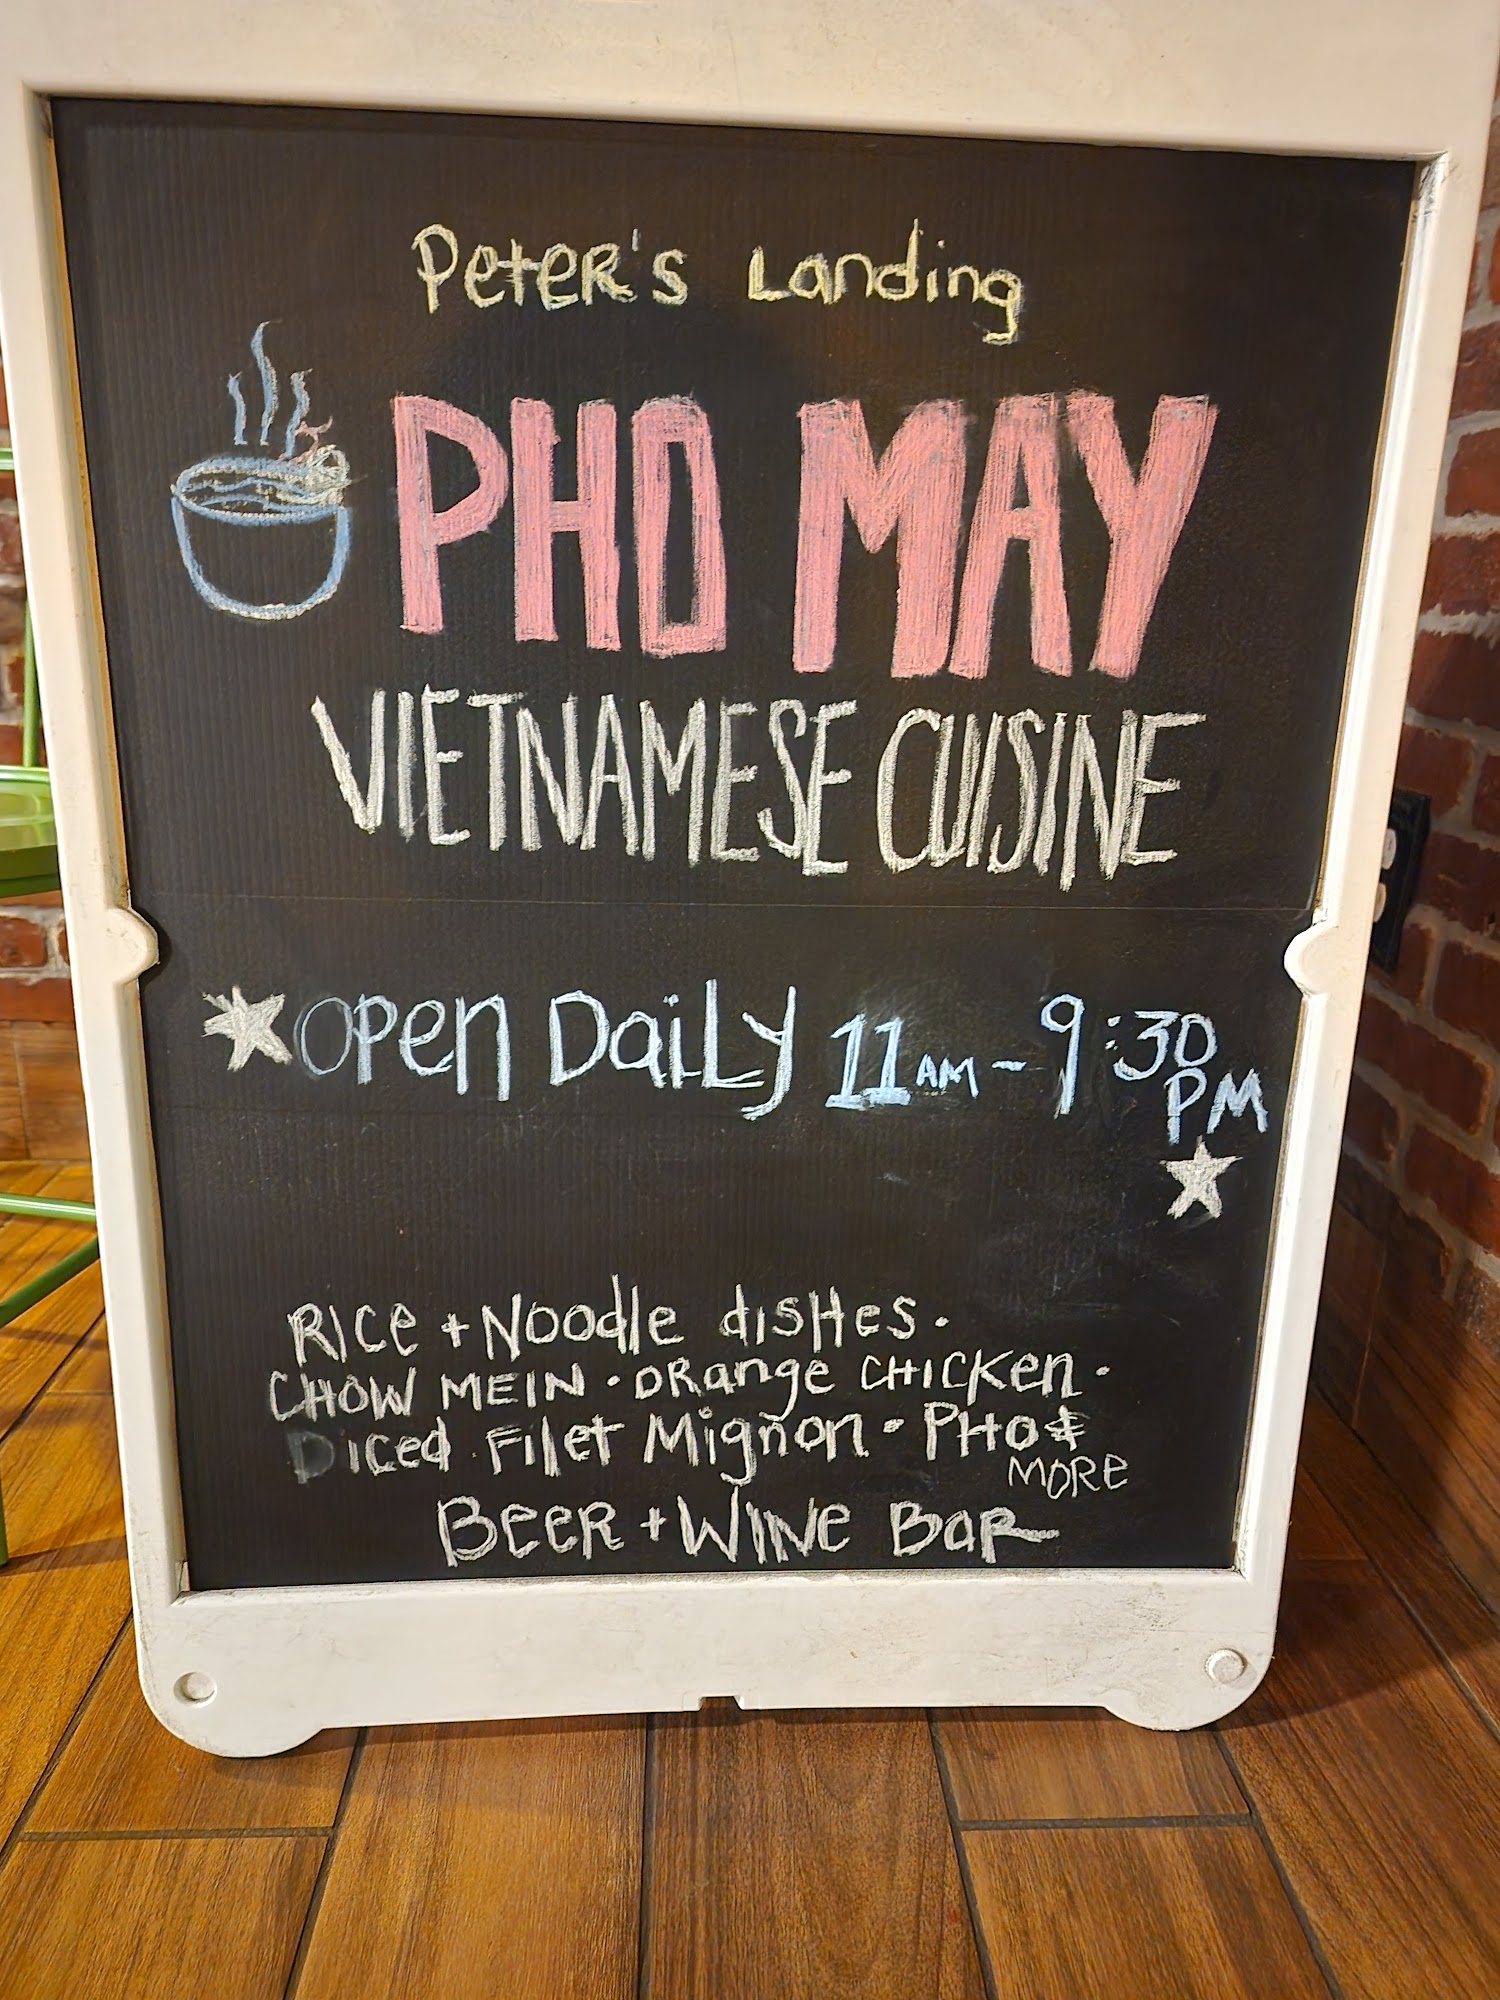 Peter's Landing
PHO MAY
VIETNAMESE CUISINE
OPen DaiLy 11AM - 9:30
PM
RICe + Noodle dISHes.
CHOW MEIN · ORange CHICKen ·
DICed FIleT Mignon · PHO &
MORE
BeeR + WINe BaR